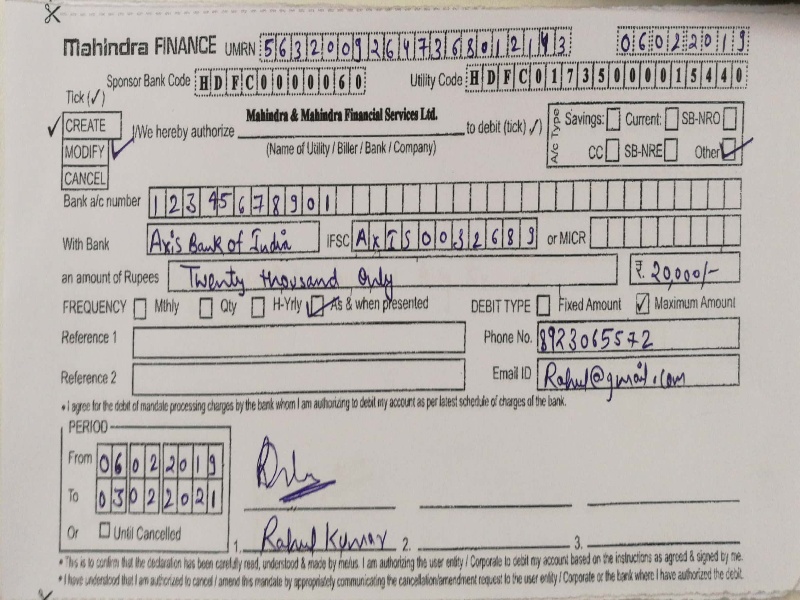 Mahindra FINANCE UMRN 56320092647368012193 06022019
Sponsor Bank Code HDFC0000060 Utility Code HDFC01735000015440
Tick (✓)
CREATE
MODIFY
CANCEL
I/We hereby authorize Mahindra & Mahindra Financial Services Ltd. to debit (tick ✓)
(Name of Utility / Biller / Bank / Company)
A/c Type Savings: Current: SB-NRO
CC SB-NRE Other
Bank a/c number 12345678901
With Bank Axis Bank of India IFSC AXIS0032689 or MICR
an amount of Rupees Twenty thousand Only ₹. 20,000/-
FREQUENCY Mthly Qty H-Yrly As & when presented DEBIT TYPE Fixed Amount Maximum Amount
Reference 1 Phone No. 8923065572
Reference 2 Email ID Rahul@gmail.com
• I agree for the debit of mandate processing charges by the bank whom I am authorizing to debit my account as per latest schedule of charges of the bank.
PERIOD
From 06022019
To 03022021
Or Until Cancelled
1. Rahul Kumar 2. 3.
• This is to confirm that the declaration has been carefully read, understood & made by me/us. I am authorizing the user entity / Corporate to debit my account based on the instructions as agreed & signed by me.
• I have understood that I am authorized to cancel / amend this mandate by appropriately communicating the cancellation/amendment request to the user entity / Corporate or the bank where I have authorized the debit.